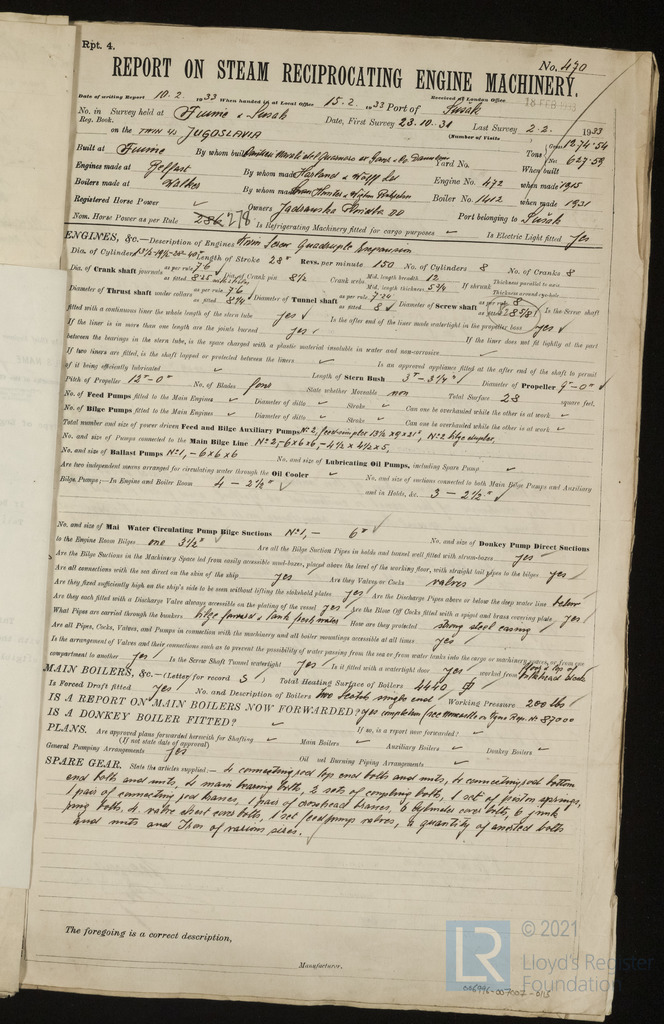 Rpt. 4.
No. 470
REPORT ON STEAM RECIPROCATING ENGINE MACHINERY.
Received at London Office
Date of writing Report 10.2. 1933 When handed in at Local Office 15.2. 1933 Port of Susak
No. in Survey held at Fiume & Susak Date, First Survey 23.10.31 Last Survey 2-2. 1933
Reg. Book. (Number of Visits
on the TWIN SS JUGOSLAVIA Tons Gross 1274.54
Net 627.59
Built at Fiume By whom built Yard No. When built
Engines made at Belfast By whom made Harland & Wolff Ltd Engine No. 472 when made 1915
Boilers made at Walker By whom made Swan Hunter & Wigham Richardson Boiler No. 1412 when made 1931
Registered Horse Power Owners Jadranska Plovidba DD Port belonging to Sušak
Nom. Horse Power as per Rule 278 Is Refrigerating Machinery fitted for cargo purposes Is Electric Light fitted yes
ENGINES, &c.—Description of Engines Twin Screw Quadruple Expansion
Dia. of Cylinders Length of Stroke 28" Revs. per minute 150 No. of Cylinders 8 No. of Cranks 8
Dia. of Crank shaft journals as per rule 7.6 as fitted 8.25 Dia. of Crank pin 8½ Crank webs Mid. length breadth 12 Mid. length thickness 5¾ If shrunk Thickness parallel to axis Thickness around eyehole
Diameter of Thrust shaft under collars as per rule 7.6 as fitted 8¼ Diameter of Tunnel shaft as per rule 7.24 as fitted 8 Diameter of Screw shaft as per rule 8 as fitted 8 5/8 Is the Screw shaft
fitted with a continuous liner the whole length of the stern tube yes Is the after end of the liner made watertight in the propeller boss yes
If the liner is in more than one length are the joints burned yes If the liner does not fit tightly at the part
between the bearings in the stern tube, is the space charged with a plastic material insoluble in water and non-corrosive
If two liners are fitted, is the shaft lapped or protected between the liners Is an approved appliance fitted at the after end of the shaft to permit
of it being efficiently lubricated Length of Stern Bush 3'-3¼" Diameter of Propeller 9'-0"
Pitch of Propeller 12'-0" No. of Blades four State whether Moveable non Total Surface 28 square feet.
No. of Feed Pumps fitted to the Main Engines Diameter of ditto Stroke Can one be overhauled while the other is at work
No. of Bilge Pumps fitted to the Main Engines Diameter of ditto Stroke Can one be overhauled while the other is at work
Total number and size of power driven Feed and Bilge Auxiliary Pumps No 2, feed-simplex 13½ x 9 x 21", No 2 bilge duplex,
No. and size of Pumps connected to the Main Bilge Line No 2,-6x6x6,-4½ x 4½ x 5,
No. and size of Ballast Pumps No 1,-6x6x6 No. and size of Lubricating Oil Pumps, including Spare Pump
Are two independent means arranged for circulating water through the Oil Cooler No. and size of suctions connected to both Main Bilge Pumps and Auxiliary
Bilge Pumps;—In Engine and Boiler Room 4 - 2½" and in Holds, &c. 3 - 2½"
No. and size of Main Water Circulating Pump Bilge Suctions No 1,- 6" No. and size of Donkey Pump Direct Suctions
to the Engine Room Bilges one 3½" Are all the Bilge Suction Pipes in holds and tunnel well fitted with strum-boxes yes
Are the Bilge Suctions in the Machinery Space led from easily accessible mud-boxes, placed above the level of the working floor, with straight tail pipes to the bilges yes
Are all connections with the sea direct on the skin of the ship yes Are they Valves or Cocks valves
Are they fixed sufficiently high on the ship's side to be seen without lifting the stokehold plates yes Are the Discharge Pipes above or below the deep water line below
Are they each fitted with a Discharge Valve always accessible on the plating of the vessel yes Are the Blow Off Cocks fitted with a spigot and brass covering plate yes
What Pipes are carried through the bunkers bilge forward & tank fresh water How are they protected strong steel casing
Are all Pipes, Cocks, Valves, and Pumps in connection with the machinery and all boiler mountings accessible at all times yes
Is the arrangement of Valves and their connections such as to prevent the possibility of water passing from the sea or from water tanks into the cargo or machinery spaces, or from one
compartment to another yes Is the Screw Shaft Tunnel watertight yes Is it fitted with a watertight door yes worked from top of bulkhead deck
MAIN BOILERS, &c.—(Letter for record S) Total Heating Surface of Boilers 4440
Is Forced Draft fitted yes No. and Description of Boilers two Scotch single end Working Pressure 200 lbs
IS A REPORT ON MAIN BOILERS NOW FORWARDED? yes completion (see Newcastle on Tyne Rep. No 87000
IS A DONKEY BOILER FITTED? If so, is a report now forwarded?
PLANS. Are approved plans forwarded herewith for Shafting Main Boilers Auxiliary Boilers Donkey Boilers
(If not state date of approval)
General Pumping Arrangements yes Oil fuel Burning Piping Arrangements
SPARE GEAR. State the articles supplied:— 4 connecting rod top end bolts and nuts, 4 connecting rod bottom
end bolts and nuts, 4 main bearing bolts, 2 sets of coupling bolts, 1 set of piston springs,
1 pair of connecting rod brasses, 1 pair of crosshead brasses, 6 cylinder cover bolts, 6 junk
ring bolts, 4 valve chest cover bolts, 1 set feed pump valves, a quantity of assorted bolts
and nuts and Iron of various sizes.
The foregoing is a correct description,
Manufacturer.
LR © 2021
Lloyd's Register
Foundation
006996-007002-0115